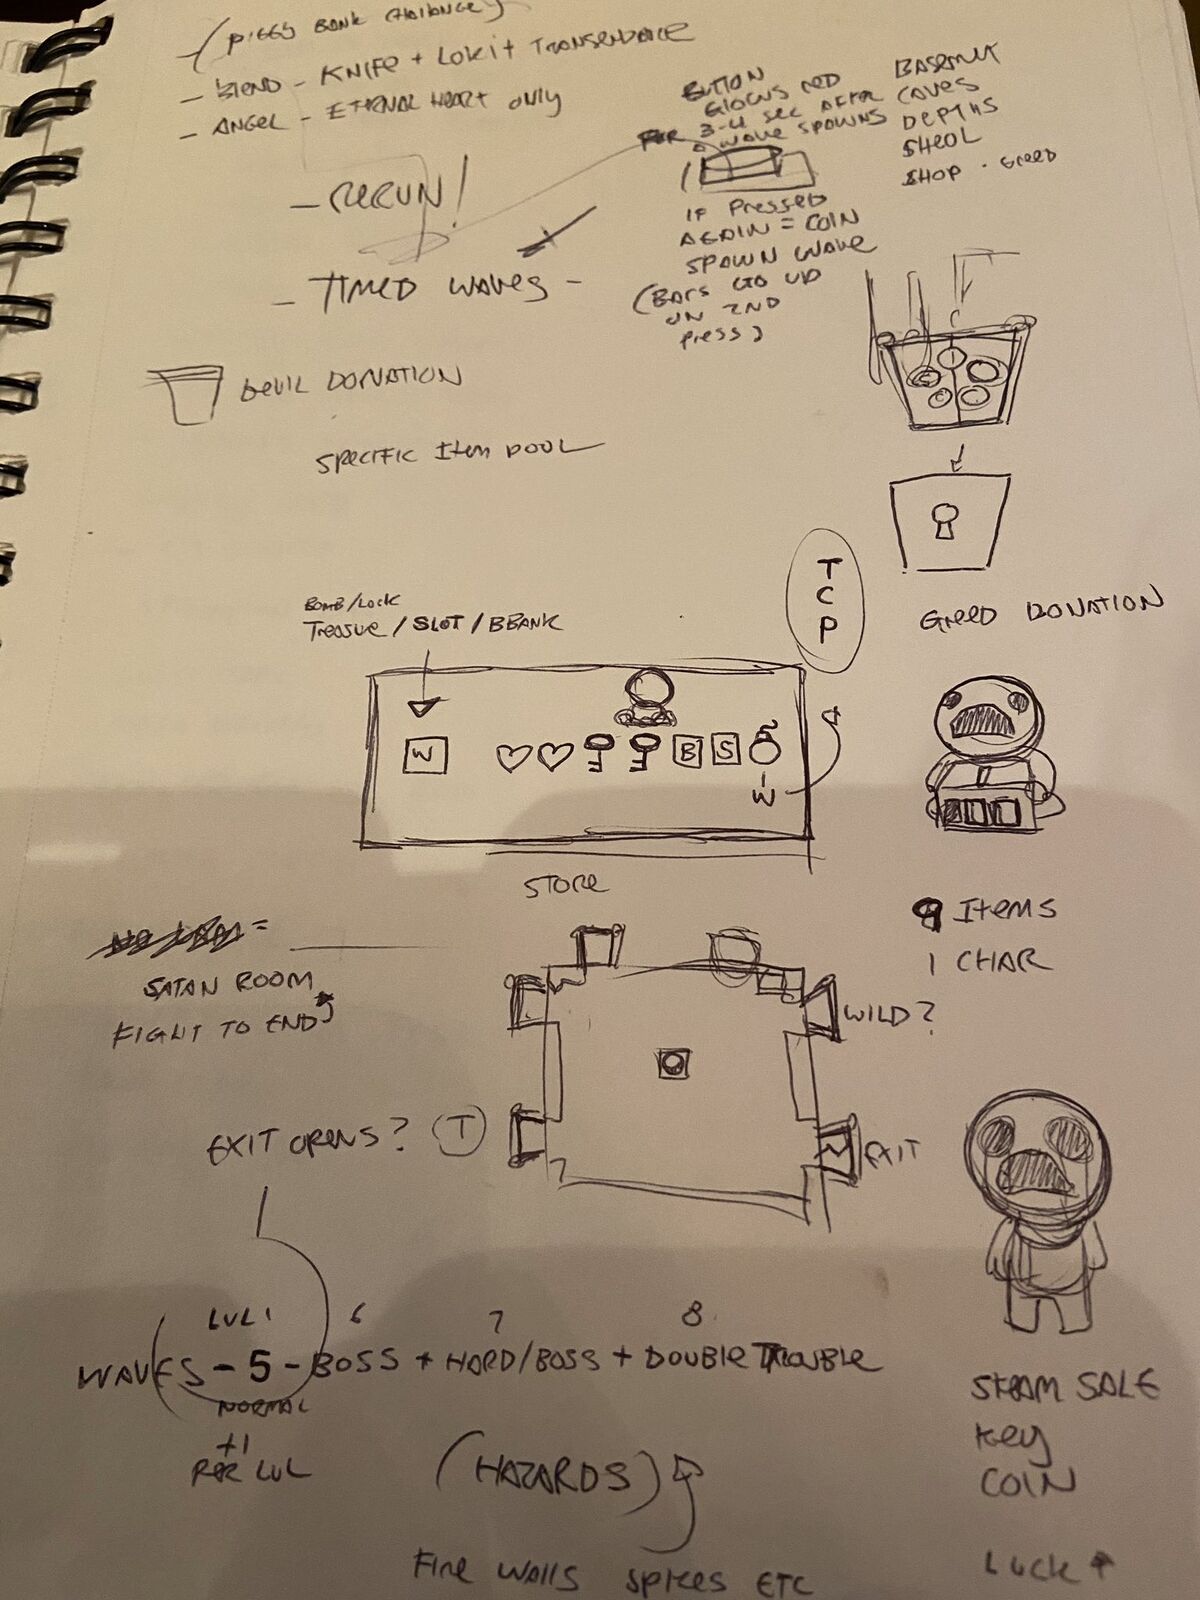 (PIGGY BANK CHALLENGE)
- BLEND - KNIFE + LOKI + TRANSENDANCE
- ANGEL - ETERNAL HEART ONLY
- RERUN!
- TIMED WAVES -
BUTTON
GLOWS RED
FOR 3-4 SEC AFTER
A WAVE SPAWNS
IF PRESSED
AGAIN = COIN
SPAWN WAVE
(BARS GO UP
ON 2ND
PRESS)
BASEMENT
CAVES
DEPTHS
SHEOL
SHOP - GREED
DEVIL DONATION
SPECIFIC ITEM POOL
GREED DONATION
T
C
P
BOMB/LOCK
TREASURE / SLOT / BBANK
W
B
S
W
STORE
9 ITEMS
1 CHAR
SATAN ROOM
FIGHT TO END
WILD?
EXIT OPENS? T
EXIT
LVL 1 6 7 8
WAVES - 5 - BOSS + HARD/BOSS + DOUBLE TROUBLE
NORMAL
+1
PER LVL
(HAZARDS)
FIRE WALLS SPIKES ETC
STEAM SALE
KEY
COIN
LUCK